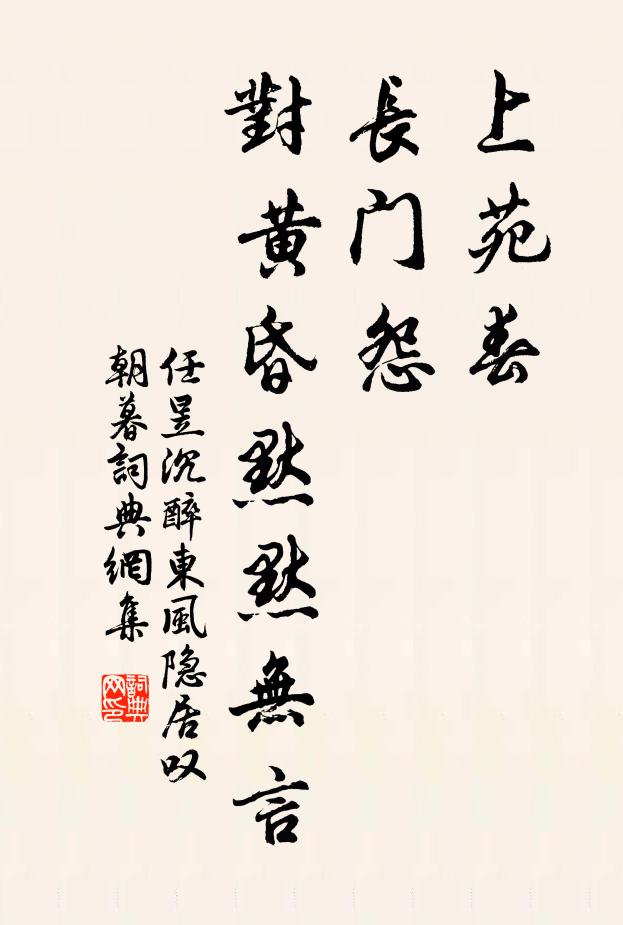 上苑春
長门怨
對黄昏默默無言
任昱沉醉東風隐居叹
朝暮詞典網集
詞典网印